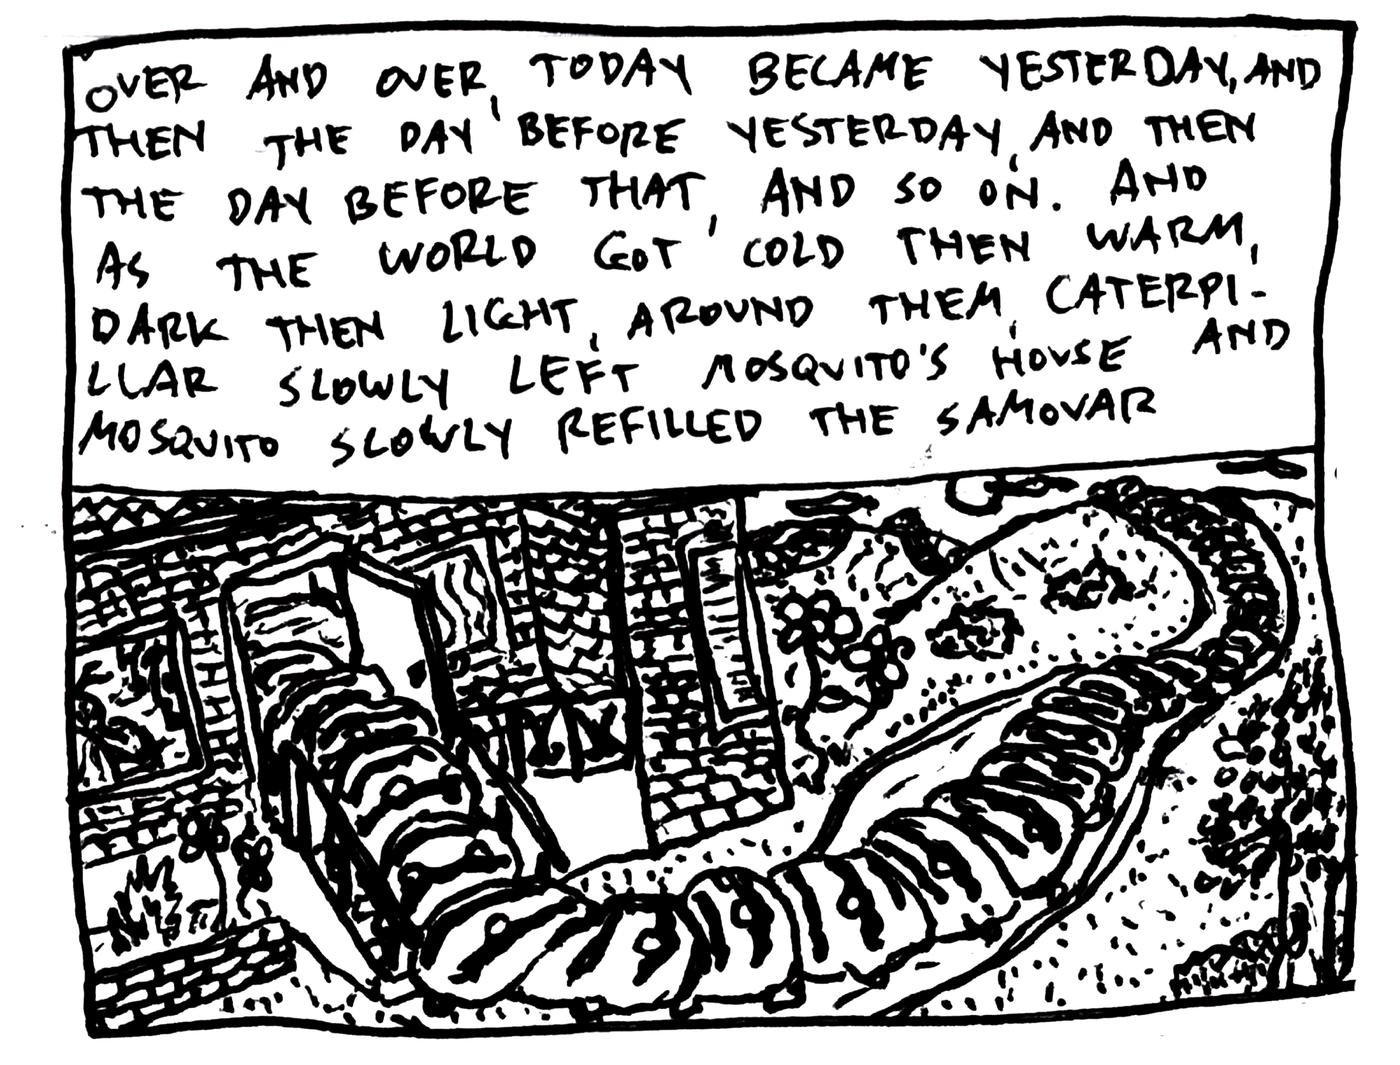 OVER AND OVER, TODAY BECAME YESTERDAY, AND
THEN THE DAY BEFORE YESTERDAY, AND THEN
THE DAY BEFORE THAT, AND SO ON. AND
AS THE WORLD GOT COLD THEN WARM,
DARK THEN LIGHT, AROUND THEM, CATERPI-
LLAR SLOWLY LEFT MOSQUITO'S HOUSE AND
MOSQUITO SLOWLY REFILLED THE SAMOVAR